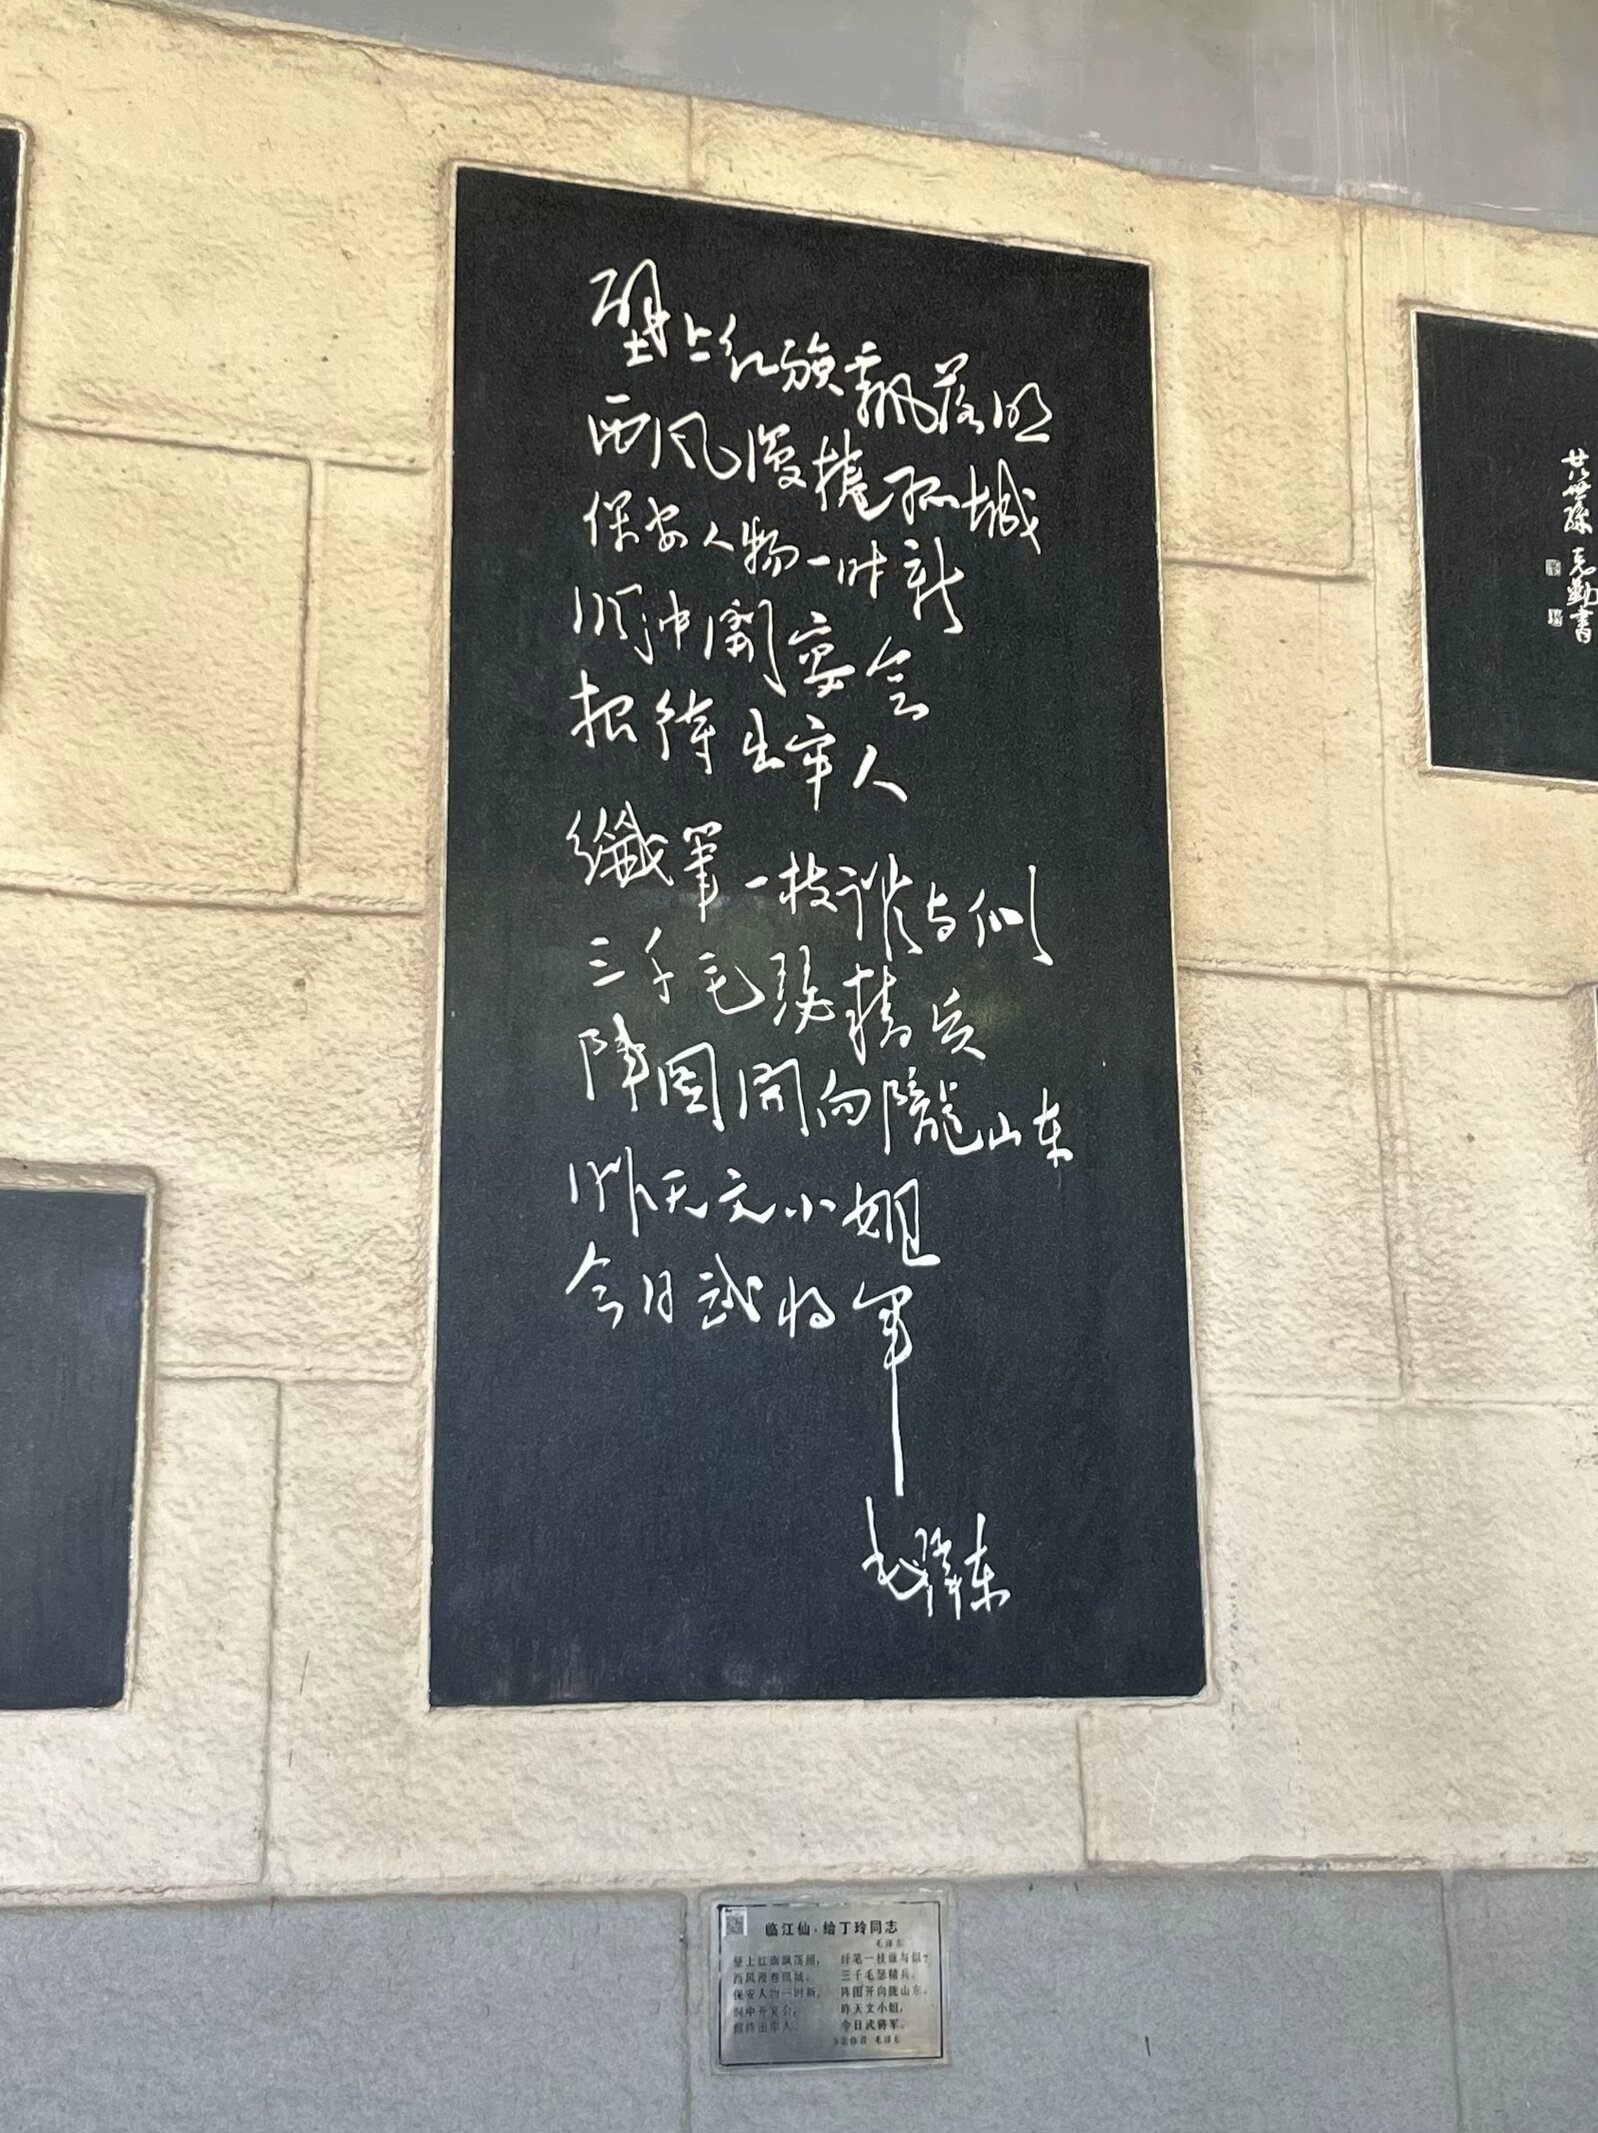 壁上红旗飘落照
西风漫捲孤城
保安人物一时新
洞中開宴会
招待出牢人
纖筆一枝谁与似
三千毛瑟精兵
阵图開向隴山东
昨天文小姐
今日武将军
毛泽东
廿世孫 克勤書
临江仙·给丁玲同志
毛泽东
壁上红旗飘落照，
西风漫卷孤城。
保安人物一时新。
洞中开宴会，
招待出牢人。
纤笔一枝谁与似？
三千毛瑟精兵。
阵图开向陇山东。
昨天文小姐，
今日武将军。
毛泽东